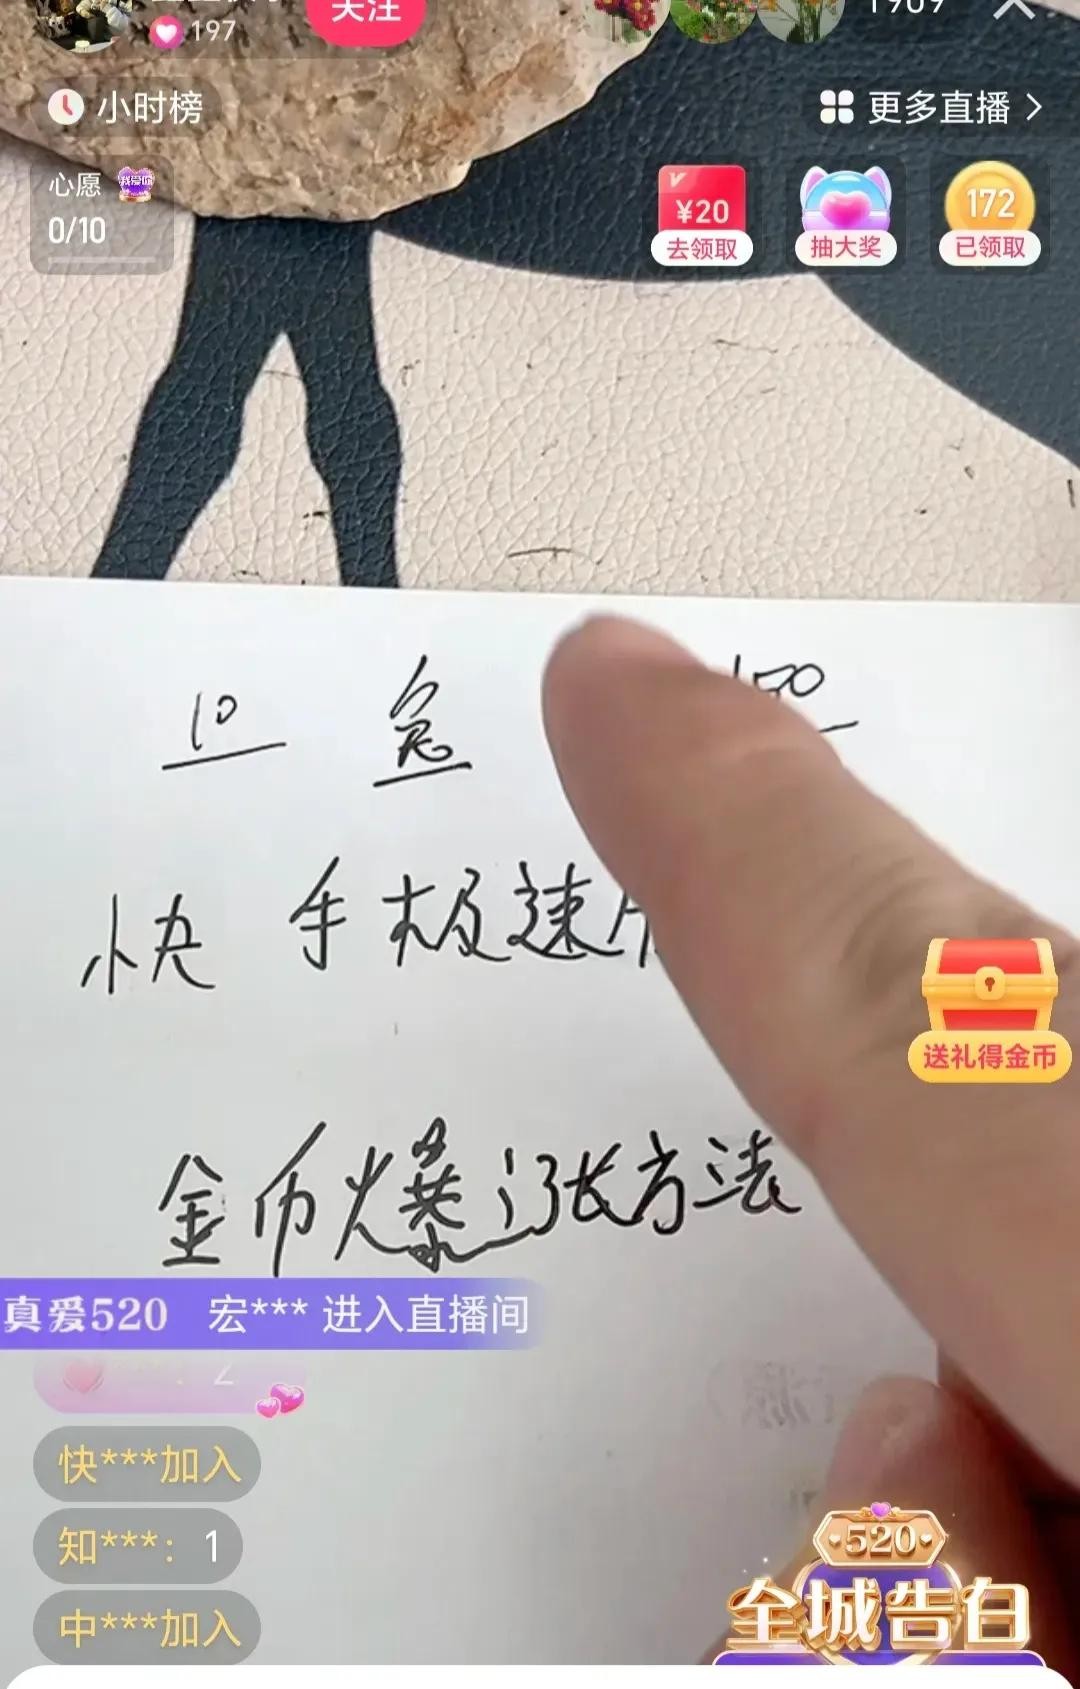 关注
197
1909
小时榜
更多直播
心愿 我爱你
0/10
¥20
去领取
抽大奖
172
已领取
10 急 150
快手极速
金币爆涨方法
送礼得金币
真爱520 宏*** 进入直播间
2
快***加入
知***: 1
中***加入
520
全城告白